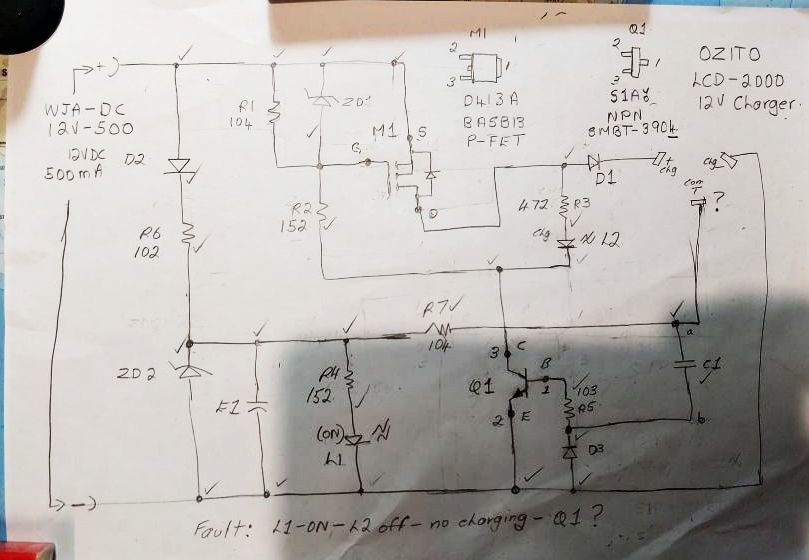 M1
2
1
3
D413A
BA5B13
P-FET
Q1
2
1
3
NPN
SMBT-3904
OZITO
LCD-2000
12V Charger.
+)
WJA-DC
12V-500
12VDC
500mA
D2
R1
104
ZD1
M1
S
G
D
D1
+
chg
chg
com
T
?
R6
102
R2
152
472
R3
chg
L2
R7
104
a
ZD2
E1
R4
152
(ON)
L1
3
C
Q1
B
1
2
E
103
R5
C1
b
D3
-)
Fault: L1-ON-L2 off-no charging-Q1?